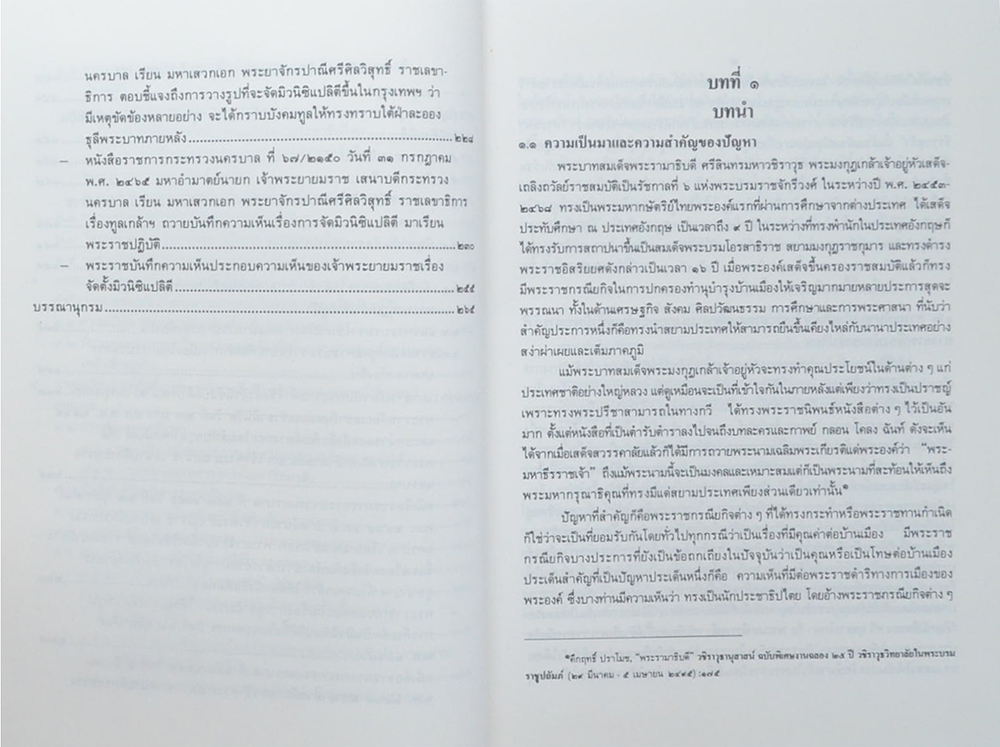 นครบาล เรียน มหาเสวกเอก พระยาจักรปาณีศรีศิลวิสุทธิ์ ราชเลขา-
ธิการ ตอบชี้แจงถึงการวางรูปที่จะจัดมิวนิซิแปลิตีขึ้นในกรุงเทพฯ ว่า
มีเหตุขัดข้องหลายอย่าง จะได้กราบบังคมทูลให้ทรงทราบใต้ฝ่าละออง
ธุลีพระบาทภายหลัง ๒๒๘
– หนังสือราชการกระทรวงนครบาล ที่ ๖๗/๒๑๕๐ วันที่ ๓๑ กรกฎาคม
พ.ศ. ๒๔๖๕ มหาอำมาตย์นายก เจ้าพระยายมราช เสนาบดีกระทรวง
นครบาล เรียน มหาเสวกเอก พระยาจักรปาณีศรีศิลวิสุทธิ์ ราชเลขาธิการ
เรื่องทูลเกล้าฯ ถวายบันทึกความเห็นเรื่องการจัดมิวนิซิแปลิตี มาเรียน
พระราชปฏิบัติ ๒๓๐
– พระราชบันทึกความเห็นประกอบความเห็นของเจ้าพระยายมราชเรื่อง
จัดตั้งมิวนิซิแปลิตี ๒๕๕
บรรณานุกรม ๒๖๕
บทที่ ๑
บทนำ
๑.๑ ความเป็นมาและความสำคัญของปัญหา
พระบาทสมเด็จพระรามาธิบดี ศรีสินทรมหาวชิราวุธ พระมงกุฎเกล้าเจ้าอยู่หัวเสด็จ-
เถลิงถวัลย์ราชสมบัติเป็นรัชกาลที่ ๖ แห่งพระบรมราชจักรีวงศ์ ในระหว่างปี พ.ศ. ๒๔๕๓-
๒๔๖๘ ทรงเป็นพระมหากษัตริย์ไทยพระองค์แรกที่ผ่านการศึกษาจากต่างประเทศ ได้เสด็จ
ประทับศึกษา ณ ประเทศอังกฤษ เป็นเวลาถึง ๙ ปี ในระหว่างที่ทรงพำนักในประเทศอังกฤษก็
ได้ทรงรับการสถาปนาขึ้นเป็นสมเด็จพระบรมโอรสาธิราช สยามมงกุฎราชกุมาร และทรงดำรง
พระราชอิสริยยศดังกล่าวเป็นเวลา ๑๖ ปี เมื่อพระองค์เสด็จขึ้นครองราชสมบัติแล้วก็ทรง
มีพระราชกรณียกิจในการปกครองทำนุบำรุงบ้านเมืองให้เจริญมากมายหลายประการสุดจะ
พรรณนา ทั้งในด้านเศรษฐกิจ สังคม ศิลปวัฒนธรรม การศึกษาและการพระศาสนา ที่นับว่า
สำคัญประการหนึ่งก็คือทรงนำสยามประเทศให้สามารถยืนขึ้นเคียงไหล่กับนานาประเทศอย่าง
สง่าผ่าเผยและเต็มภาคภูมิ
แม้พระบาทสมเด็จพระมงกุฎเกล้าเจ้าอยู่หัวจะทรงทำคุณประโยชน์ในด้านต่าง ๆ แก่
ประเทศชาติอย่างใหญ่หลวง แต่ดูเหมือนจะเป็นที่เข้าใจกันในภายหลังแต่เพียงว่าทรงเป็นปราชญ์
เพราะทรงพระปรีชาสามารถในทางกวี ได้ทรงพระราชนิพนธ์หนังสือต่าง ๆ ไว้เป็นอัน
มาก ตั้งแต่หนังสือที่เป็นตำรับตำราลงไปจนถึงบทละครและกาพย์ กลอน โคลง ฉันท์ ดังจะเห็น
ได้จากเมื่อเสด็จสวรรคาลัยแล้วก็ได้มีการถวายพระนามเฉลิมพระเกียรติแด่พระองค์ว่า “พระ-
มหาธีรราชเจ้า” ถึงแม้พระนามนี้จะเป็นมงคลและเหมาะสมแต่ก็เป็นพระนามที่สะท้อนให้เห็นถึง
พระมหากรุณาธิคุณที่ทรงมีแด่สยามประเทศเพียงส่วนเดียวเท่านั้น*
ปัญหาที่สำคัญก็คือพระราชกรณียกิจต่าง ๆ ที่ได้ทรงกระทำหรือพระราชทานกำเนิด
ก็ใช่ว่าจะเป็นที่ยอมรับกันโดยทั่วไปทุกกรณีว่าเป็นเรื่องที่มีคุณค่าต่อบ้านเมือง มีพระราช
กรณียกิจบางประการที่ยังเป็นข้อถกเถียงในปัจจุบันว่าเป็นคุณหรือเป็นโทษต่อบ้านเมือง
ประเด็นสำคัญที่เป็นปัญหาประเด็นหนึ่งก็คือ ความเห็นที่มีต่อพระราชดำริทางการเมืองของ
พระองค์ ซึ่งบางท่านมีความเห็นว่า ทรงเป็นนักประชาธิปไตย โดยอ้างพระราชกรณียกิจต่าง ๆ
*คึกฤทธิ์ ปราโมช, “พระรามาธิบดี” วชิราวุธานุสาสน์ ฉบับพิเศษงานฉลอง ๒๕ ปี วชิราวุธวิทยาลัยในพระบรม
ราชูปถัมภ์ (๒๙ มีนาคม - ๕ เมษายน ๒๔๙๕) :๑๗๕